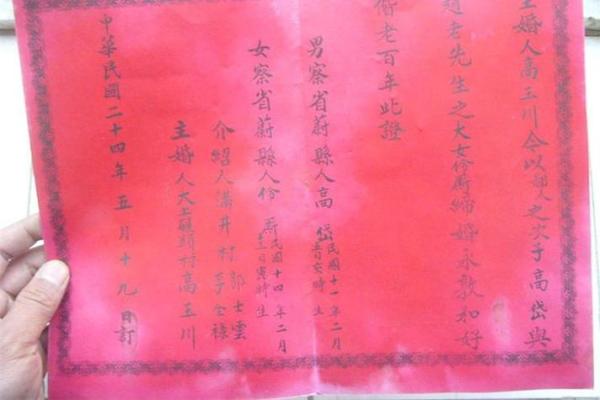 主婚人高玉川今以鄙人之次子高岱與
趙老先生之大女俊卿締婚永敦和好
偕老百年此證
男察省蔚縣人高岱民國十一年二月
時生
女察省蔚縣人 民國十四年二月
日寅時生
介紹人滿井村郭士雲
李全祿
主婚人大 頭村高玉川
中華民國二十四年五月十九日訂